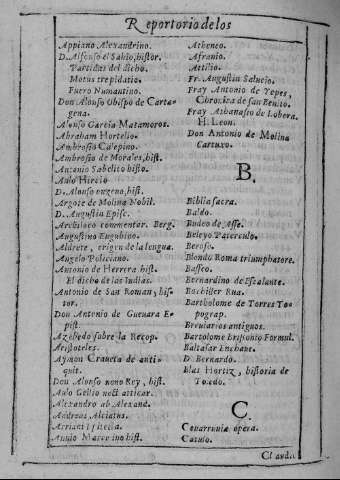 Reportorio de los
Appiano Alexandrino.
D. Alfonso el Sabio, histor.
Partidas del dicho.
Motus trepidatio.
Fuero Numantino.
Don Alonso Obispo de Carta-
gena.
Alonso Garcia Matamoros.
Abraham Hortelio.
Ambrosio Calepino.
Ambrosio de Morales, hist.
Antonio Sabelico histo.
Aulo Hircio
D. Alonso onzeno, hist.
Argote de Molina Nobil.
D. Augustin Episc.
Archiloco commentar. Berg.
Augustino Eugubino.
Aldrete, origen de la lengua.
Angelo Policiano.
Antonio de Herrera hist.
El dicho de las Indias.
Antonio de San Roman, his-
tor.
Don Antonio de Gueuara E-
pist.
Azebedo sobre la Recop.
Aristoteles.
Aymon Craueta de anti-
quit.
Don Alonso nono Rey, hist.
Aulo Gelio noct atticar.
Alexandro ab Alexand.
Andreas Alciatus.
Arriani Epistola.
Annio Marcelino hist.
Atheneo.
Afranio.
Actilio.
Fr. Augustin Salucio.
Fray Antonio de Yepes,
Chronica de san Benito.
Fray Athanasio de Lobera.
H. Leon.
Don Antonio de Molina
Cartuxo.
B.
Biblia sacra.
Baldo.
Budeo de Asse.
Beleyo Paterculo.
Beroso.
Blondo Roma triumphatore.
Basseo.
Bernardino de Escalante.
Bachiller Rua.
Bartholome de Torres To-
pograp.
Breuiarios antiguos.
Bartolome Brisonio Formul.
Baltasar Enchaue.
D. Bernardo.
Blas Hortiz, historia de
Toledo.
C.
Cenarruuia opera.
Catulo.
Claudia